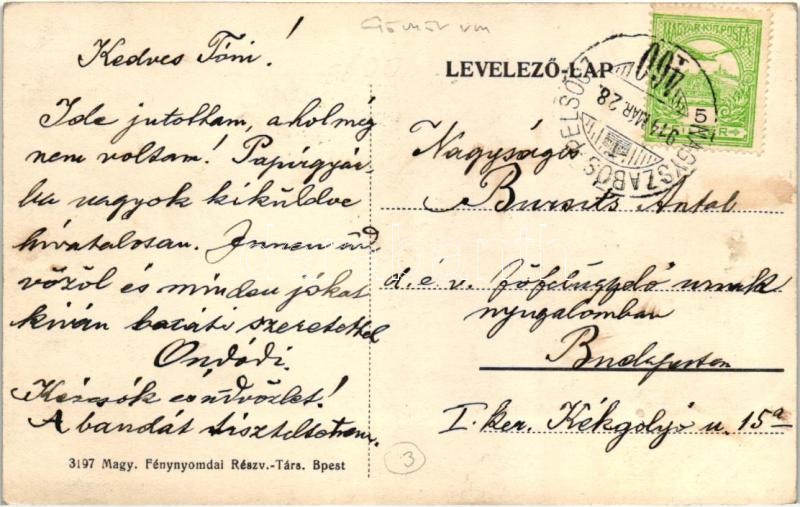 Gömör vm
Kedves Tóni!
Ide jutottam, ahol még
nem voltam! Papírgyár-
ba vagyok kiküldve
hivatalosan. Innen üd
vözöl és minden jókat
kiván baráti szeretettel
Ondódi.
Kézcsók és üdvözlet!
A bandát tiszteltetem.
3197 Magy. Fénynyomdai Részv.-Társ. Bpest
LEVELEZŐ-LAP
MAGYAR KIR. POSTA
5
400
MAR. 28
NAGYSZABOS-PELSŐCZ
Nagyságos
Bursits Antal
d. é. v. főfelügyelő urnak
nyugalomban
Budapesten
I. ker. Kékgolyó u. 15a
3